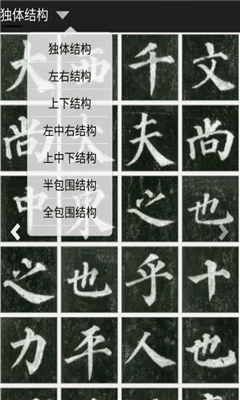 独体结构
独体结构
左右结构
上下结构
左中右结构
上中下结构
半包围结构
全包围结构
大 西 千 文
尚 大 夫 尚
中 之 也
之 也 乎 十
力 平 人 也